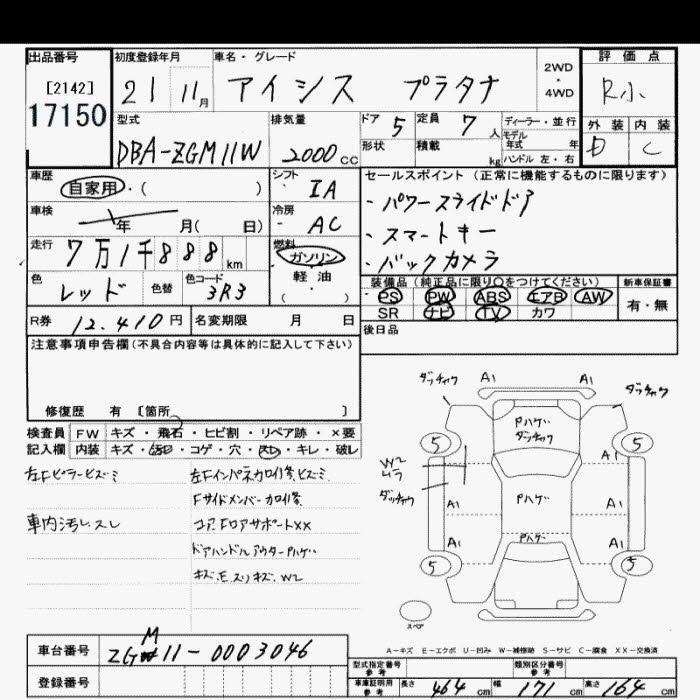 出品番号
[2142]
17150
初度登録年月
21 11月
車名・グレード
アイシス プラタナ
2WD
・
4WD
評価点
R小
外装 内装
D C
型式
DBA-ZGM11W
排気量
2000cc
ドア 5
定員 7人
形状
積載 kg
ディーラー・並行
モデル
年式 年
ハンドル 左・右
車歴
自家用・( )
シフト
IA
車検
年 月( 日)
冷房
AC
走行
7万1千888km
燃料
ガソリン
軽油
( )
色
レッド
色替
色コード
3R3
セールスポイント(正常に機能するものに限ります)
・パワースライドドア
・スマートキー
・バックカメラ
装備品(純正品に限り○をつけてください)
PS PW ABS エアB AW
SR ナビ TV カワ
新車保証書
有・無
R券 12,410円
名変期限 月 日
後日品
注意事項申告欄(不具合内容等は具体的に記入して下さい)
修復歴 有 [箇所 ]
検査員
記入欄
FW キズ・飛石・ヒビ割・リペア跡・×要
内装 キズ・汚レ・コゲ・穴・スレ・キレ・破レ
左Fピラーヒズミ
車内汚レ.スレ
左Fインパネカロ修.ヒズミ
Fサイドメンバーカロ修
コア.FロアサポートXX
ドアハンドルアウターPハゲ
キズ.E.スリキズ.W2
ダッチャク A1 A1 ダッチャク
Pハゲ
ダッチャク
5 5
W2
ムラ
ダッチャク
A1
Pハゲ
A1 A1
Pハゲ
A1 A1
5 5
スペア
A-キズ E-エクボ U-凹み W-補修跡 S-サビ C-腐食 XX-交換済
車台番号
ZGM11-0003046
登録番号
型式指定番号
参考
類別区分番号
参考
車庫証明用
参考
長さ 464cm 幅 171cm 高さ 164cm